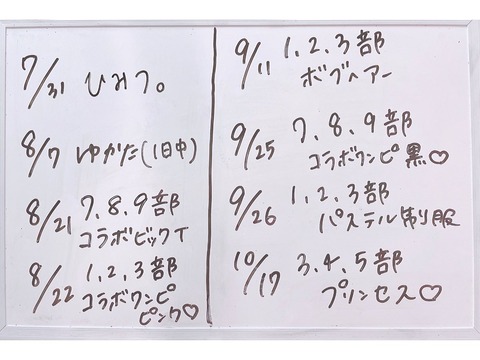 7/31 ひみつ。
8/7 ゆかた(1日中)
8/21 7、8、9部
コラボビックT
8/22 1、2、3部
コラボワンピ
ピンク♡
9/11 1、2、3部
ボブヘアー
9/25 7、8、9部
コラボワンピ黒♡
9/26 1、2、3部
パステル制服
10/17 3、4、5部
プリンセス♡